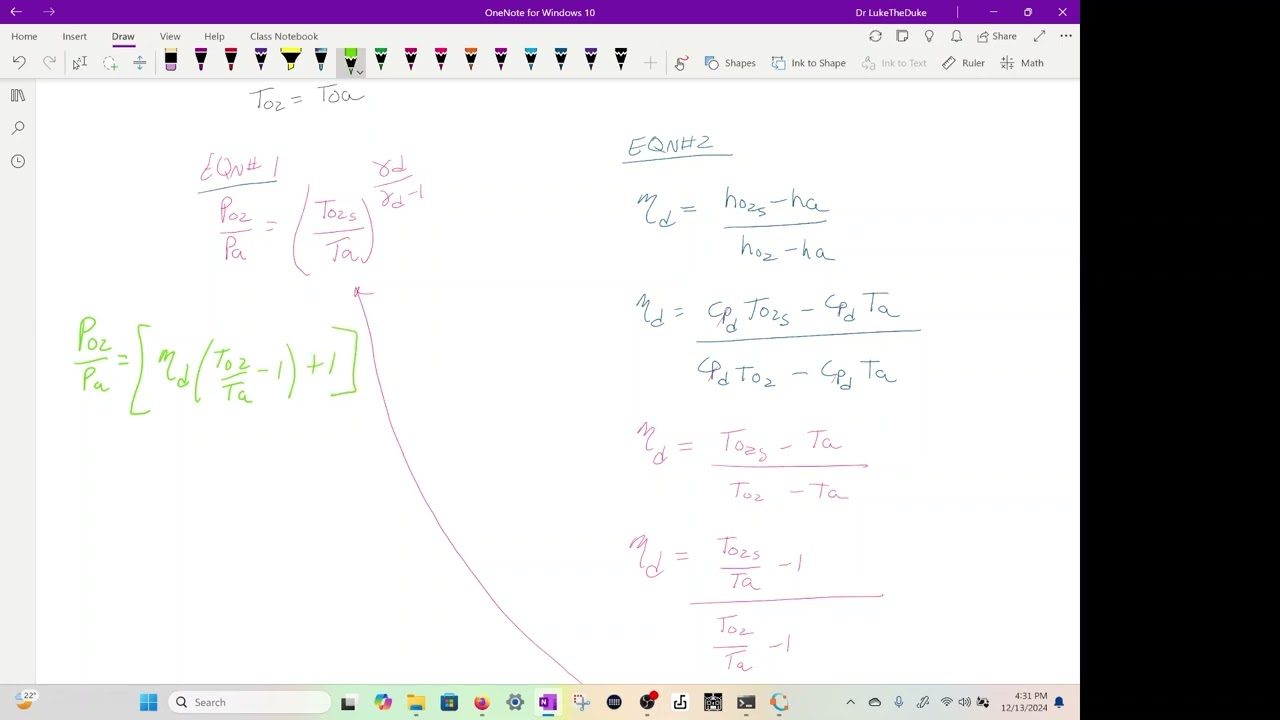 OneNote for Windows 10
Dr LukeTheDuke
Home Insert Draw View Help Class Notebook
Share
Shapes Ink to Shape Ink to Text Ruler Math
T02 = T0a
EQN#1
P02/Pa = (T02s/Ta)^(γd/(γd-1))
P02/Pa = [ηd(T02/Ta - 1) + 1]
EQN#2
ηd = (h02s - ha)/(h02 - ha)
ηd = (Cpd T02s - Cpd Ta)/(Cpd T02 - Cpd Ta)
ηd = (T02s - Ta)/(T02 - Ta)
ηd = (T02s/Ta - 1)/(T02/Ta - 1)
22°
Search
4:31 PM
12/13/2024